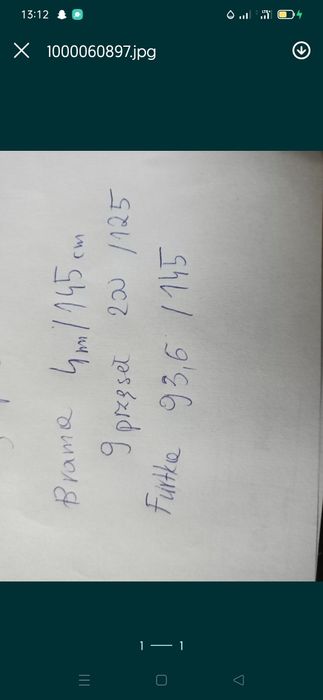 13:12
1000060897.jpg
Brama 4m/145 cm
9 przęseł 200 /125
Furtka 93,6 /145
1 — 1